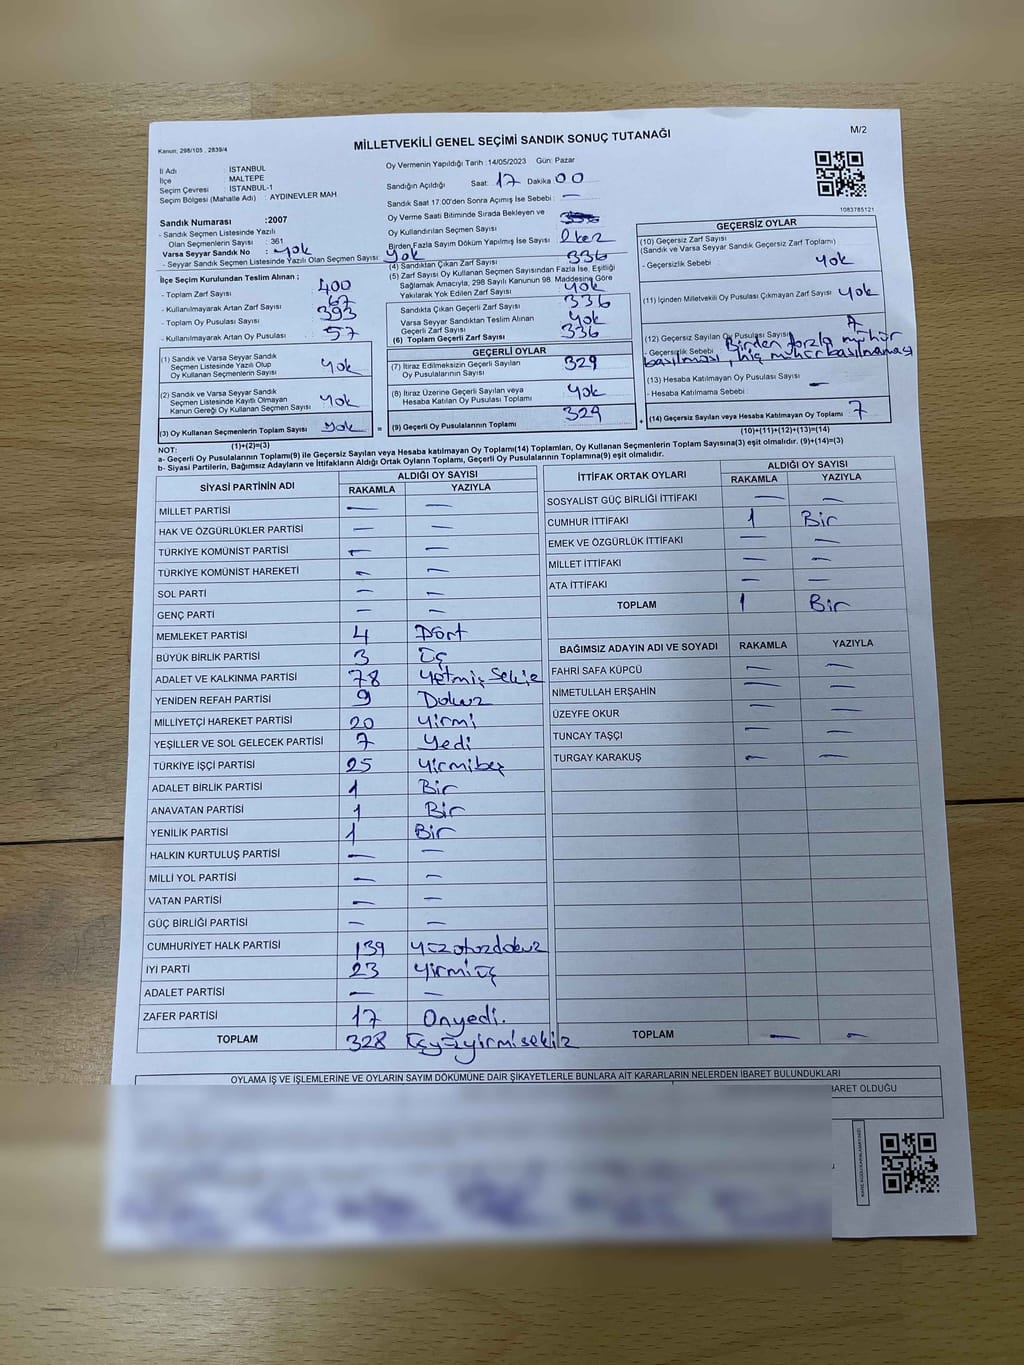 Kanun: 298/105 , 2839/4
MİLLETVEKİLİ GENEL SEÇİMİ SANDIK SONUÇ TUTANAĞI
M/2
İl Adı : İSTANBUL
İlçe MALTEPE
Seçim Çevresi : İSTANBUL-1
Seçim Bölgesi (Mahalle Adı) : AYDINEVLER MAH
Sandık Numarası :2007
- Sandık Seçmen Listesinde Yazılı
Olan Seçmenlerin Sayısı : 361
Varsa Seyyar Sandık No : Yok
- Seyyar Sandık Seçmen Listesinde Yazılı Olan Seçmen Sayısı : Yok
Oy Vermenin Yapıldığı Tarih :14/05/2023 Gün: Pazar
Sandığın Açıldığı Saat: 17 Dakika 00
Sandık Saat 17.00'den Sonra Açılmış İse Sebebi : —
Oy Verme Saati Bitiminde Sırada Bekleyen ve
Oy Kullandırılan Seçmen Sayısı
Birden Fazla Sayım Döküm Yapılmış İse Sayısı 2 kez
1083785121
İlçe Seçim Kurulundan Teslim Alınan ;
- Toplam Zarf Sayısı 400
- Kullanılmayarak Artan Zarf Sayısı 67
- Toplam Oy Pusulası Sayısı 393
- Kullanılmayarak Artan Oy Pusulası 57
(1) Sandık ve Varsa Seyyar Sandık
Seçmen Listesinde Yazılı Olup
Oy Kullanan Seçmenlerin Sayısı Yok
(2) Sandık ve Varsa Seyyar Sandık
Seçmen Listesinde Kayıtlı Olmayan
Kanun Gereği Oy Kullanan Seçmen Sayısı Yok
(3) Oy Kullanan Seçmenlerin Toplam Sayısı Yok
(1)+(2)=(3)
(4) Sandıktan Çıkan Zarf Sayısı 336
(5) Zarf Sayısı Oy Kullanan Seçmen Sayısından Fazla İse, Eşitliği
Sağlamak Amacıyla, 298 Sayılı Kanunun 98. Maddesine Göre
Yakılarak Yok Edilen Zarf Sayısı Yok
Sandıkta Çıkan Geçerli Zarf Sayısı 336
Varsa Seyyar Sandıktan Teslim Alınan
Geçerli Zarf Sayısı Yok
(6) Toplam Geçerli Zarf Sayısı 336
GEÇERLİ OYLAR
(7) İtiraz Edilmeksizin Geçerli Sayılan
Oy Pusulalarının Sayısı 329
(8) İtiraz Üzerine Geçerli Sayılan veya
Hesaba Katılan Oy Pusulası Toplamı Yok
= (9) Geçerli Oy Pusulalarının Toplamı 329
GEÇERSİZ OYLAR
(10) Geçersiz Zarf Sayısı
(Sandık ve Varsa Seyyar Sandık Geçersiz Zarf Toplamı)
- Geçersizlik Sebebi : Yok
(11) İçinden Milletvekili Oy Pusulası Çıkmayan Zarf Sayısı Yok
(12) Geçersiz Sayılan Oy Pusulası Sayısı 7
- Geçersizlik Sebebi Birden fazla mühür
basılması, hiç mühür basılmaması
(13) Hesaba Katılmayan Oy Pusulası Sayısı
- Hesaba Katılmama Sebebi : —
+ (14) Geçersiz Sayılan veya Hesaba Katılmayan Oy Toplamı 7
(10)+(11)+(12)+(13)=(14)
NOT:
a- Geçerli Oy Pusulalarının Toplamı(9) ile Geçersiz Sayılan veya Hesaba katılmayan Oy Toplamı(14) Toplamları, Oy Kullanan Seçmenlerin Toplam Sayısına(3) eşit olmalıdır. (9)+(14)=(3)
b- Siyasi Partilerin, Bağımsız Adayların ve İttifakların Aldığı Ortak Oyların Toplamı, Geçerli Oy Pusulalarının Toplamına(9) eşit olmalıdır.
SİYASİ PARTİNİN ADI ALDIĞI OY SAYISI
RAKAMLA YAZIYLA
MİLLET PARTİSİ — —
HAK VE ÖZGÜRLÜKLER PARTİSİ — —
TÜRKİYE KOMÜNİST PARTİSİ — —
TÜRKİYE KOMÜNİST HAREKETİ — —
SOL PARTİ — —
GENÇ PARTİ — —
MEMLEKET PARTİSİ 4 Dört
BÜYÜK BİRLİK PARTİSİ 3 Üç
ADALET VE KALKINMA PARTİSİ 78 Yetmiş Sekiz
YENİDEN REFAH PARTİSİ 9 Dokuz
MİLLİYETÇİ HAREKET PARTİSİ 20 Yirmi
YEŞİLLER VE SOL GELECEK PARTİSİ 7 Yedi
TÜRKİYE İŞÇİ PARTİSİ 25 Yirmibeş
ADALET BİRLİK PARTİSİ 1 Bir
ANAVATAN PARTİSİ 1 Bir
YENİLİK PARTİSİ 1 Bir
HALKIN KURTULUŞ PARTİSİ — —
MİLLİ YOL PARTİSİ — —
VATAN PARTİSİ — —
GÜÇ BİRLİĞİ PARTİSİ — —
CUMHURİYET HALK PARTİSİ 139 Yüzotuzdokuz
İYİ PARTİ 23 Yirmiüç
ADALET PARTİSİ — —
ZAFER PARTİSİ 17 Onyedi.
TOPLAM 328 Üçyüzyirmisekiz
İTTİFAK ORTAK OYLARI ALDIĞI OY SAYISI
RAKAMLA YAZIYLA
SOSYALİST GÜÇ BİRLİĞİ İTTİFAKI — —
CUMHUR İTTİFAKI 1 Bir
EMEK VE ÖZGÜRLÜK İTTİFAKI — —
MİLLET İTTİFAKI — —
ATA İTTİFAKI — —
TOPLAM 1 Bir
BAĞIMSIZ ADAYIN ADI VE SOYADI RAKAMLA YAZIYLA
FAHRİ SAFA KÜPCÜ — —
NİMETULLAH ERŞAHİN — —
ÜZEYFE OKUR — —
TUNCAY TAŞÇI — —
TURGAY KARAKUŞ — —
TOPLAM — —
OYLAMA İŞ VE İŞLEMLERİNE VE OYLARIN SAYIM DÖKÜMÜNE DAİR ŞİKAYETLERLE BUNLARA AİT KARARLARIN NELERDEN İBARET BULUNDUKLARI
BARET OLDUĞU